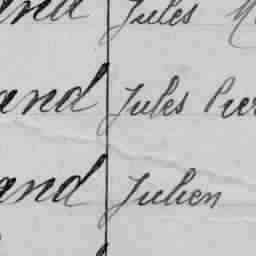 and Jules
and Jules Pier
and Julien